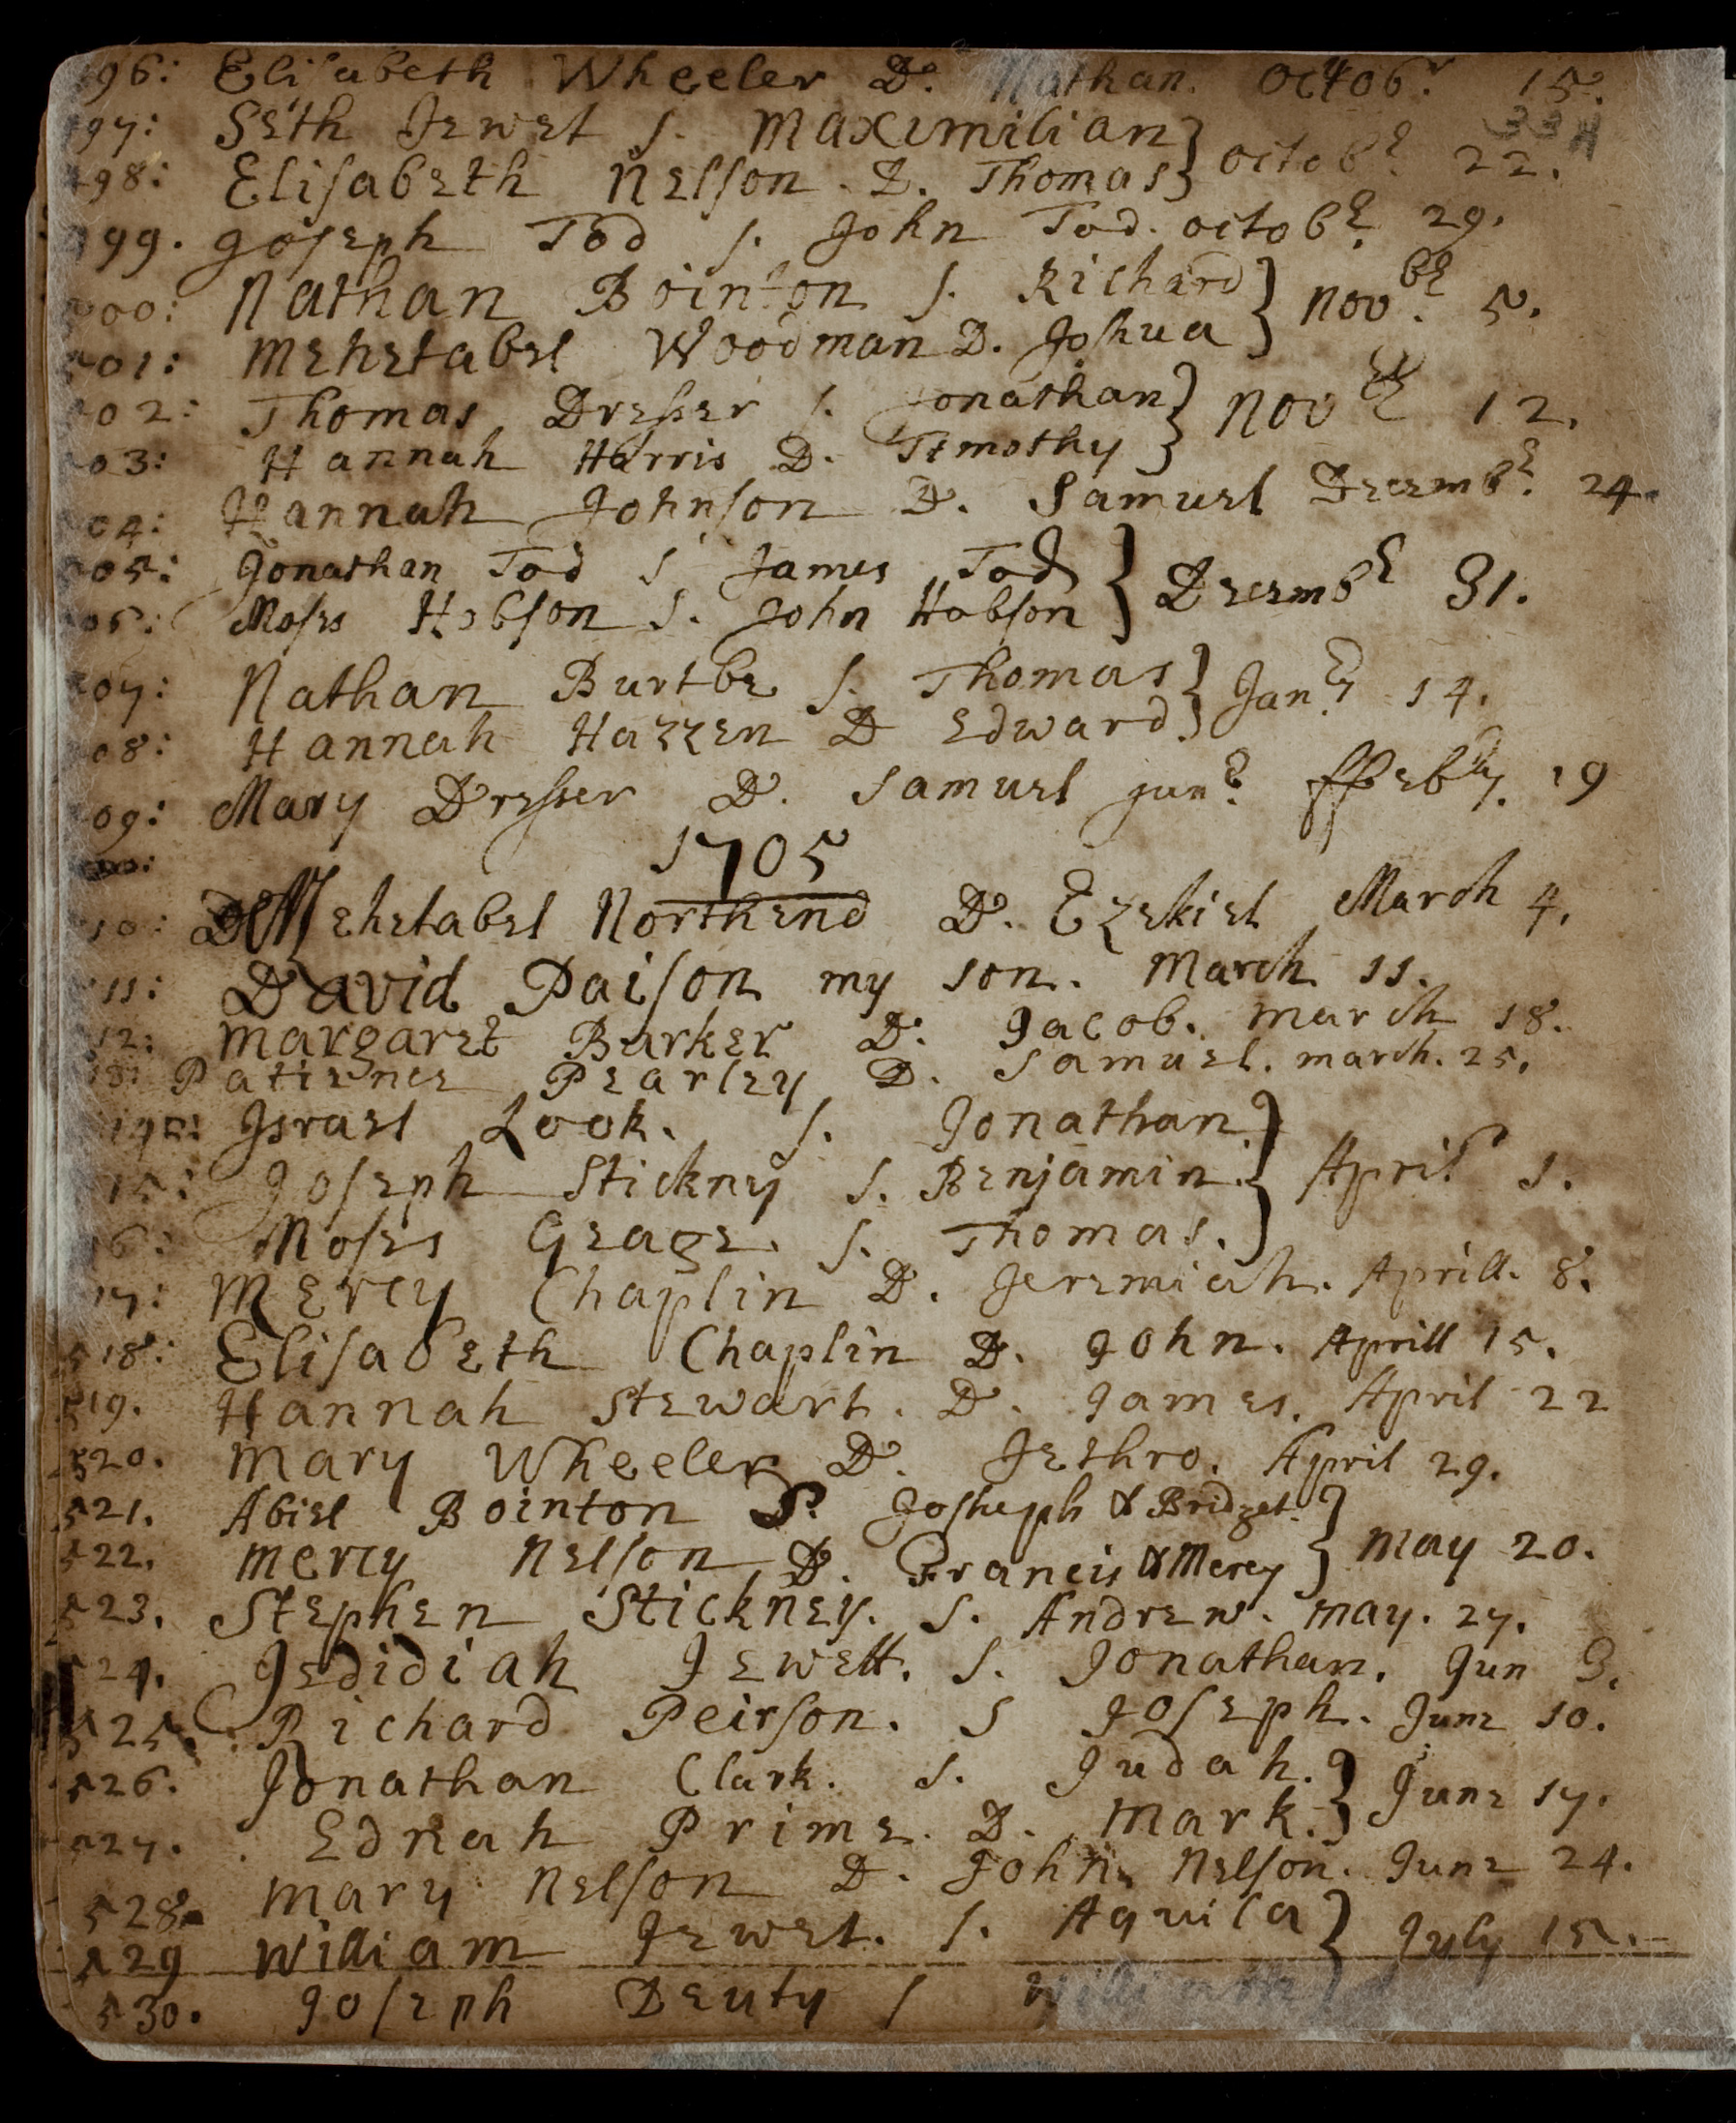 96: Elisabeth Wheeler D. Nathan. Octobr. 15.
334
97: Seth Jewet s. Maximilian
98: Elisabeth Nelson. D. Thomas } octobr 22.
99. Joseph Tod s. John Tod. octobr. 29.
500: Nathan Bointon s. Richard
501: Mehetabel Woodman D. Joshua } Novbr. 5.
502: Thomas Dresser s. Jonathan
503: Hannah Harris D. Timothy } Novbr 12.
504: Hannah Johnson D. Samuel Decembr. 24.
505: Jonathan Tod s James Tod
506: Moses Hobson s. John Hobson } Decembr 31.
507: Nathan Burtbe s. Thomas
08: Hannah Hazzen D Edward } Janry. 14.
09: Mary Dresser D. Samuel junr. ffebry. 19
1705
10: Mehetabel Northend D. Ezekiel March 4.
11: David Paison my son. March 11.
12: Margaret Barker D. Jacob. March 18.
13: Patience Pearley D. Samuel. march. 25.
14: Israel Look. s. Jonathan.
15: Joseph Stickny s. Benjamin. } April 1.
16: Moses Geage. s. Thomas.
17: Mercy Chaplin D. Jeremiah. Aprill. 8.
518: Elisabeth Chaplin D. John. Aprill 15.
519. Hannah Stewart. D. James. April 22
520. Mary Wheeler D. Jethro. April 29.
521. Abiel Bointon S. Josheph & Bridget.
522. Mercy Nelson D. Francis & Mercy } May 20.
523. Stephen Stickney. s. Andrew. may. 27.
524. Jedidiah Jewett. s. Jonathan. Jun 3.
525. Richard Peirson. s Joseph. June 10.
526. Jonathan Clark. s. Judah.
527. Ednah Prime. D. Mark. } June 17.
528. Mary Nelson D. John Nelson. June 24.
529 William Jewet. s. Aquila } July 15.
530. Joseph Deuty s William